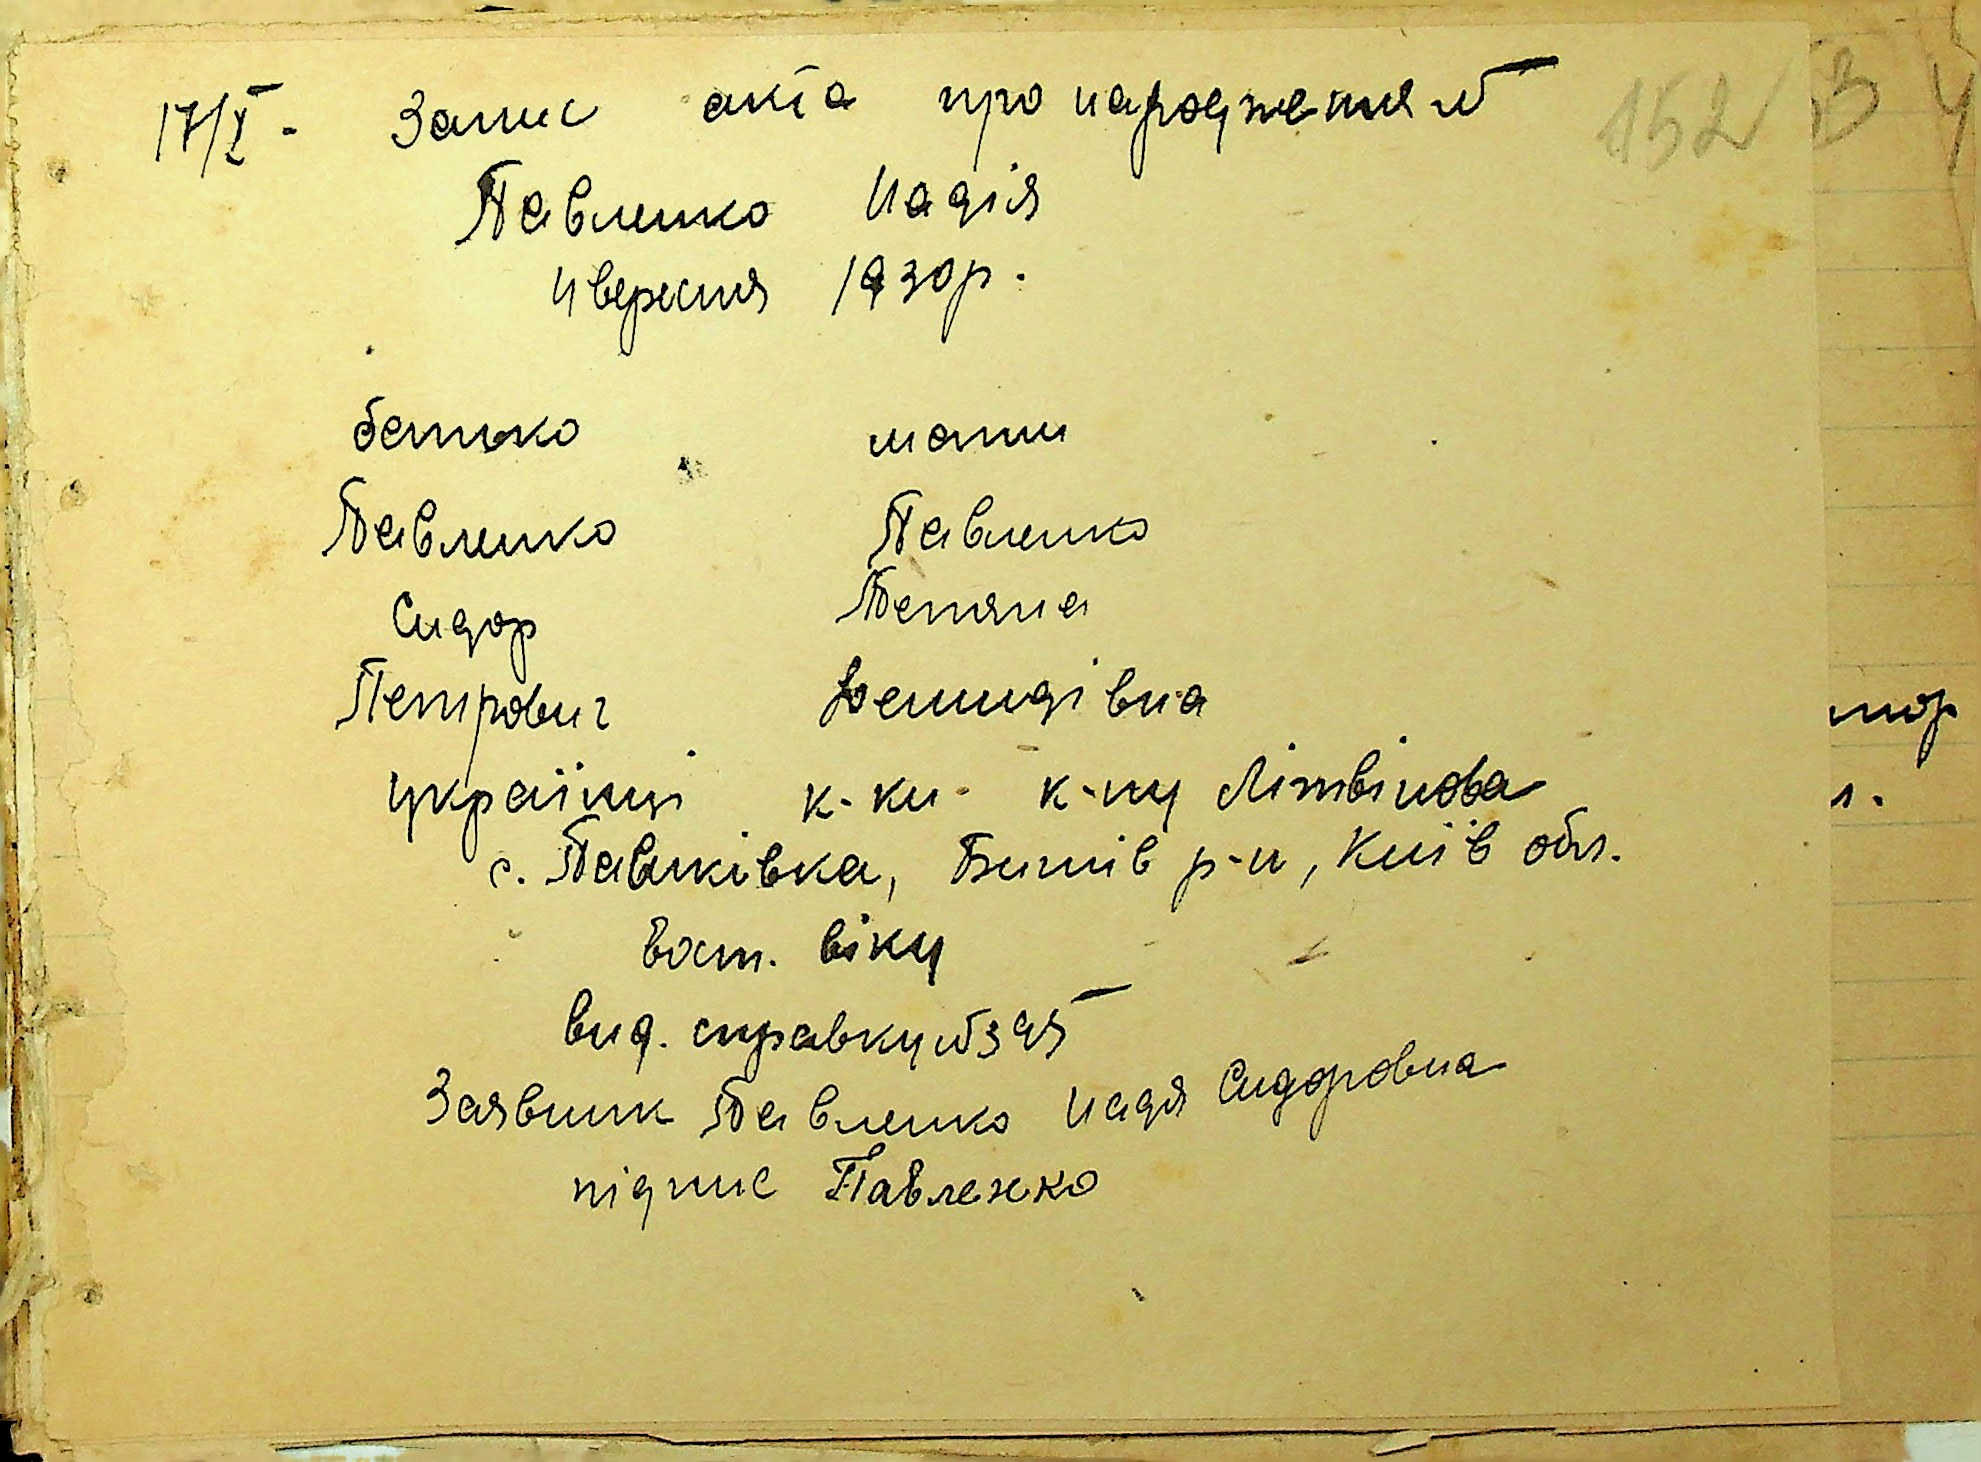 17/X. Запис акта про народження № 152 В 4
Павленко Надія
4 вересня 1930 р.
батько мати
Павленко Павленко
Сидор Тетяна
Петрович Демидівна
українці к-ки. к-пу Літвінова
с. Павлківка, Бишів р-н, Київ обл.
вост. віку
вид. справку № 395
Заявник Павленко Надя Сидоровна
підпис Павленко